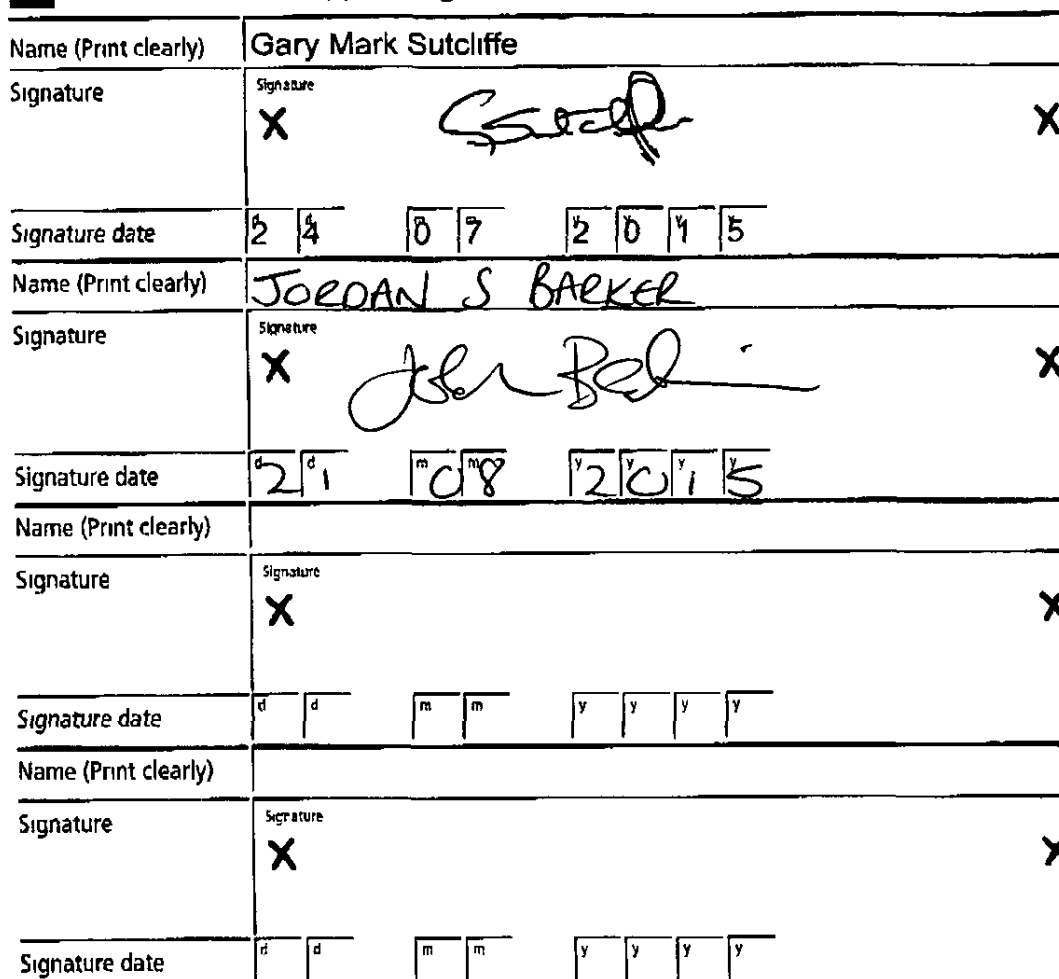 Name (Print clearly) Gary Mark Sutcliffe
Signature Signature
X X
Signature date d2 d4 m0 m7 y2 y0 y1 y5
Name (Print clearly) JORDAN S BARKER
Signature Signature
X X
Signature date d2 d1 m0 m8 y2 y0 y1 y5
Name (Print clearly)
Signature Signature
X X
Signature date d d m m y y y y
Name (Print clearly)
Signature Signature
X X
Signature date d d m m y y y y